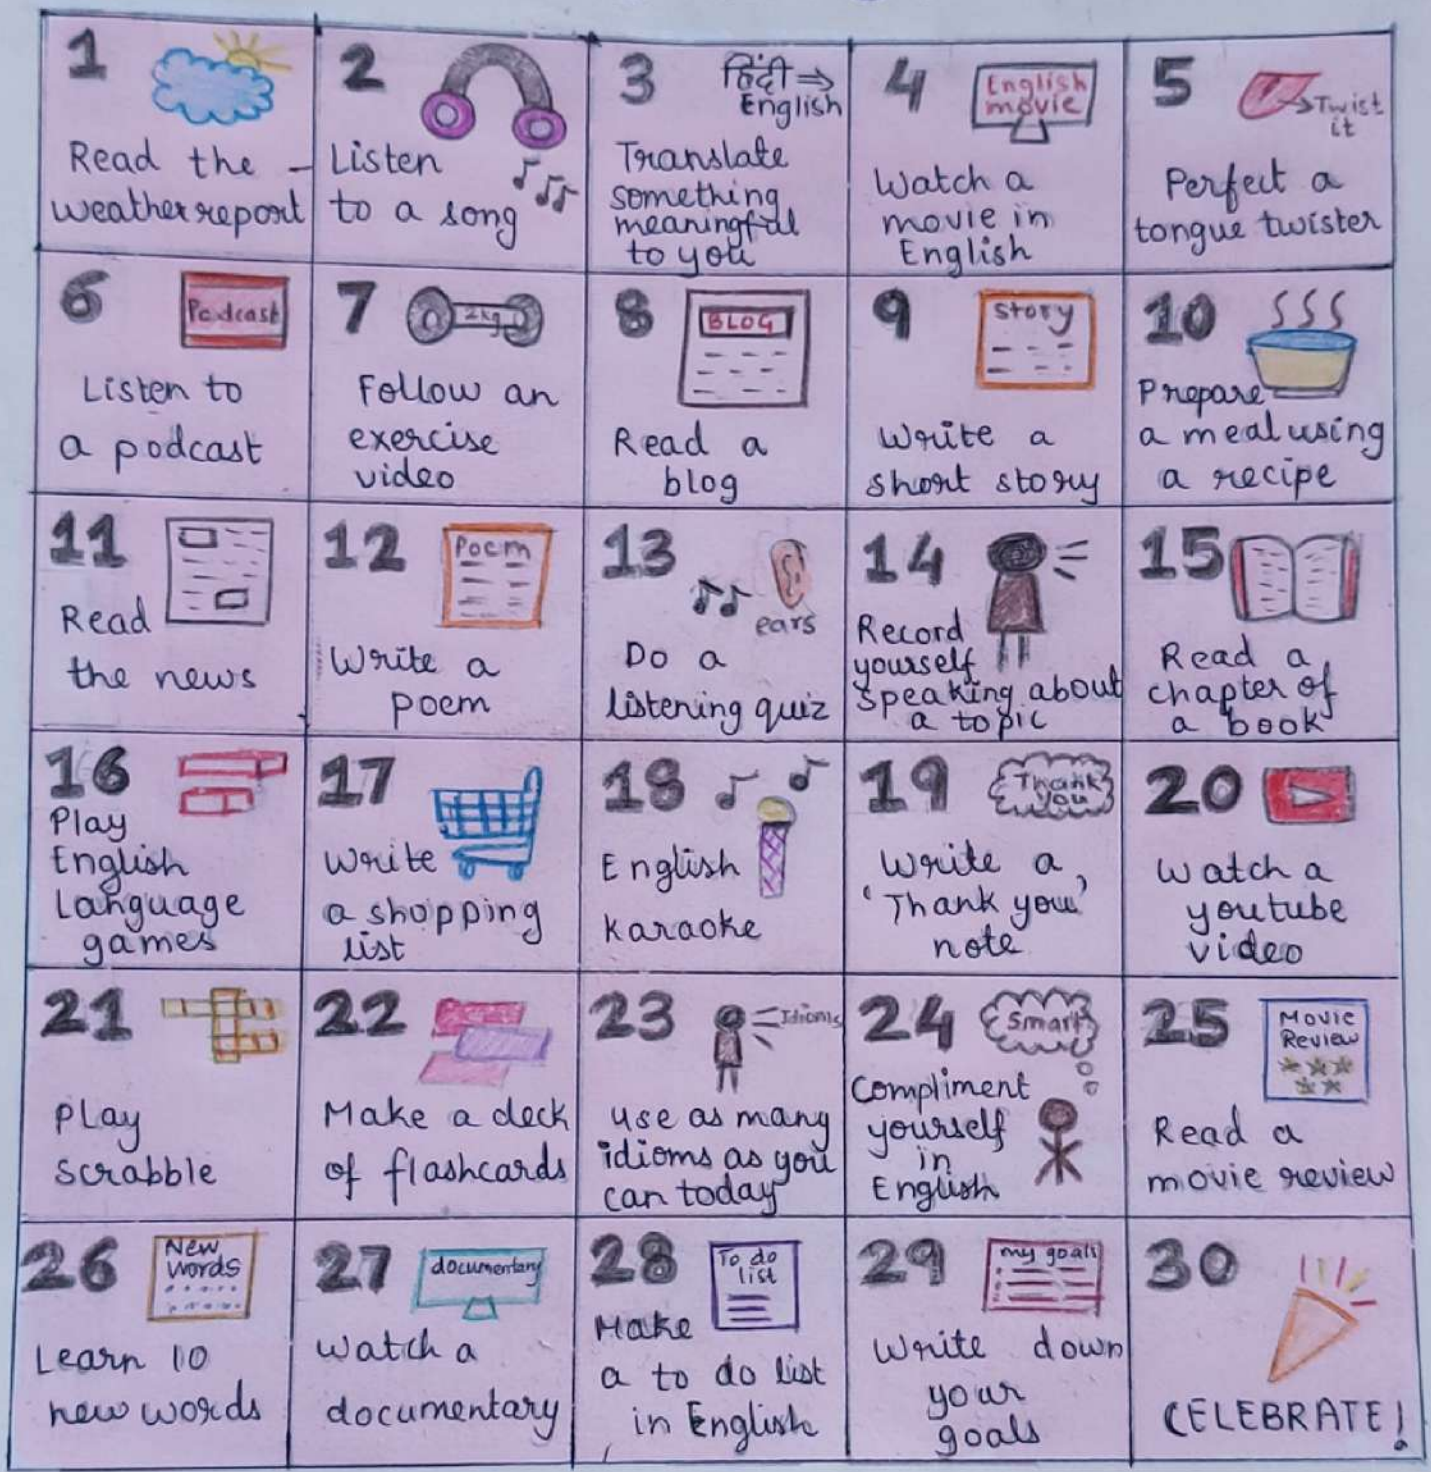 1
Read the
weather report
2
Listen
to a song
3
हिंदी ⇒
English
Translate
something
meaningful
to you
4
English
movie
Watch a
movie in
English
5
Twist
it
Perfect a
tongue twister
6
Podcast
Listen to
a podcast
7
2kg
Follow an
exercise
video
8
BLOG
Read a
blog
9
Story
Write a
short story
10
Prepare
a meal using
a recipe
11
Read
the news
12
Poem
Write a
poem
13
ears
Do a
listening quiz
14
Record
yourself
speaking about
a topic
15
Read a
chapter of
a book
16
Play
English
Language
games
17
Write
a shopping
list
18
English
Karaoke
19
Thank
you
Write a
'Thank you'
note
20
Watch a
youtube
video
21
Play
scrabble
22
Make a deck
of flashcards
23
Idioms
use as many
idioms as you
can today
24
Smart
Compliment
yourself
in
English
25
Movie
Review
Read a
movie review
26
New
Words
Learn 10
new words
27
documentary
Watch a
documentary
28
To do
list
Make
a to do list
in English
29
my goals
Write down
your
goals
30
CELEBRATE!